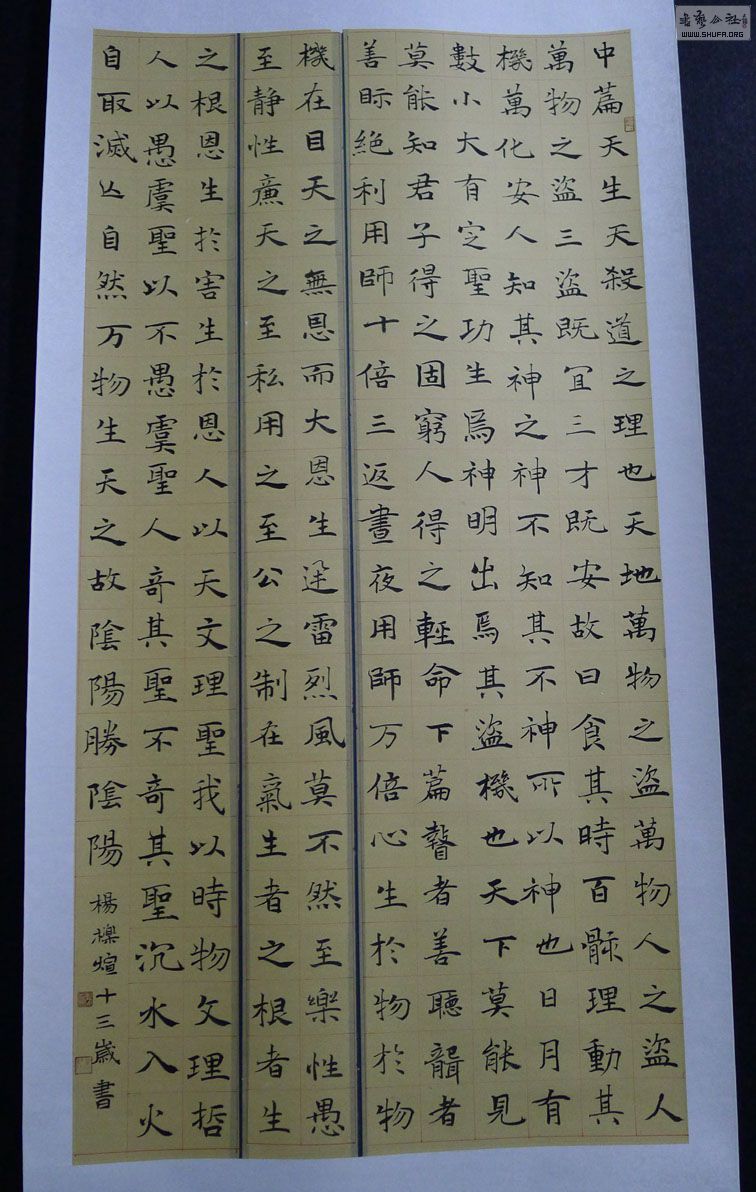 書藝公社
WWW.SHUFA.ORG
中篇天生天殺道之理也天地萬物之盜萬物人之盜人
萬物之盜三盜既冝三才既安故曰食其時百骸理動其
機萬化安人知其神之神不知其不神所以神也日月有
數小大有㝎聖功生焉神明出焉其盜機也天下莫能見
莫能知君子得之固窮人得之輕命下篇瞽者善聽聾者
善眎絶利用師十倍三返晝夜用師万倍心生於物於物
機在目天之無恩而大恩生迅雷烈風莫不然至樂性愚
至静性廉天之至私用之至公之制在氣生者之根者生
之根恩生於害生於恩人以天文理聖我以時物文理哲
人以愚虞聖以不愚虞聖人竒其聖不竒其聖沉水入火
自取滅亾自然万物生天之故陰陽勝陰陽
楊煊十三歲書